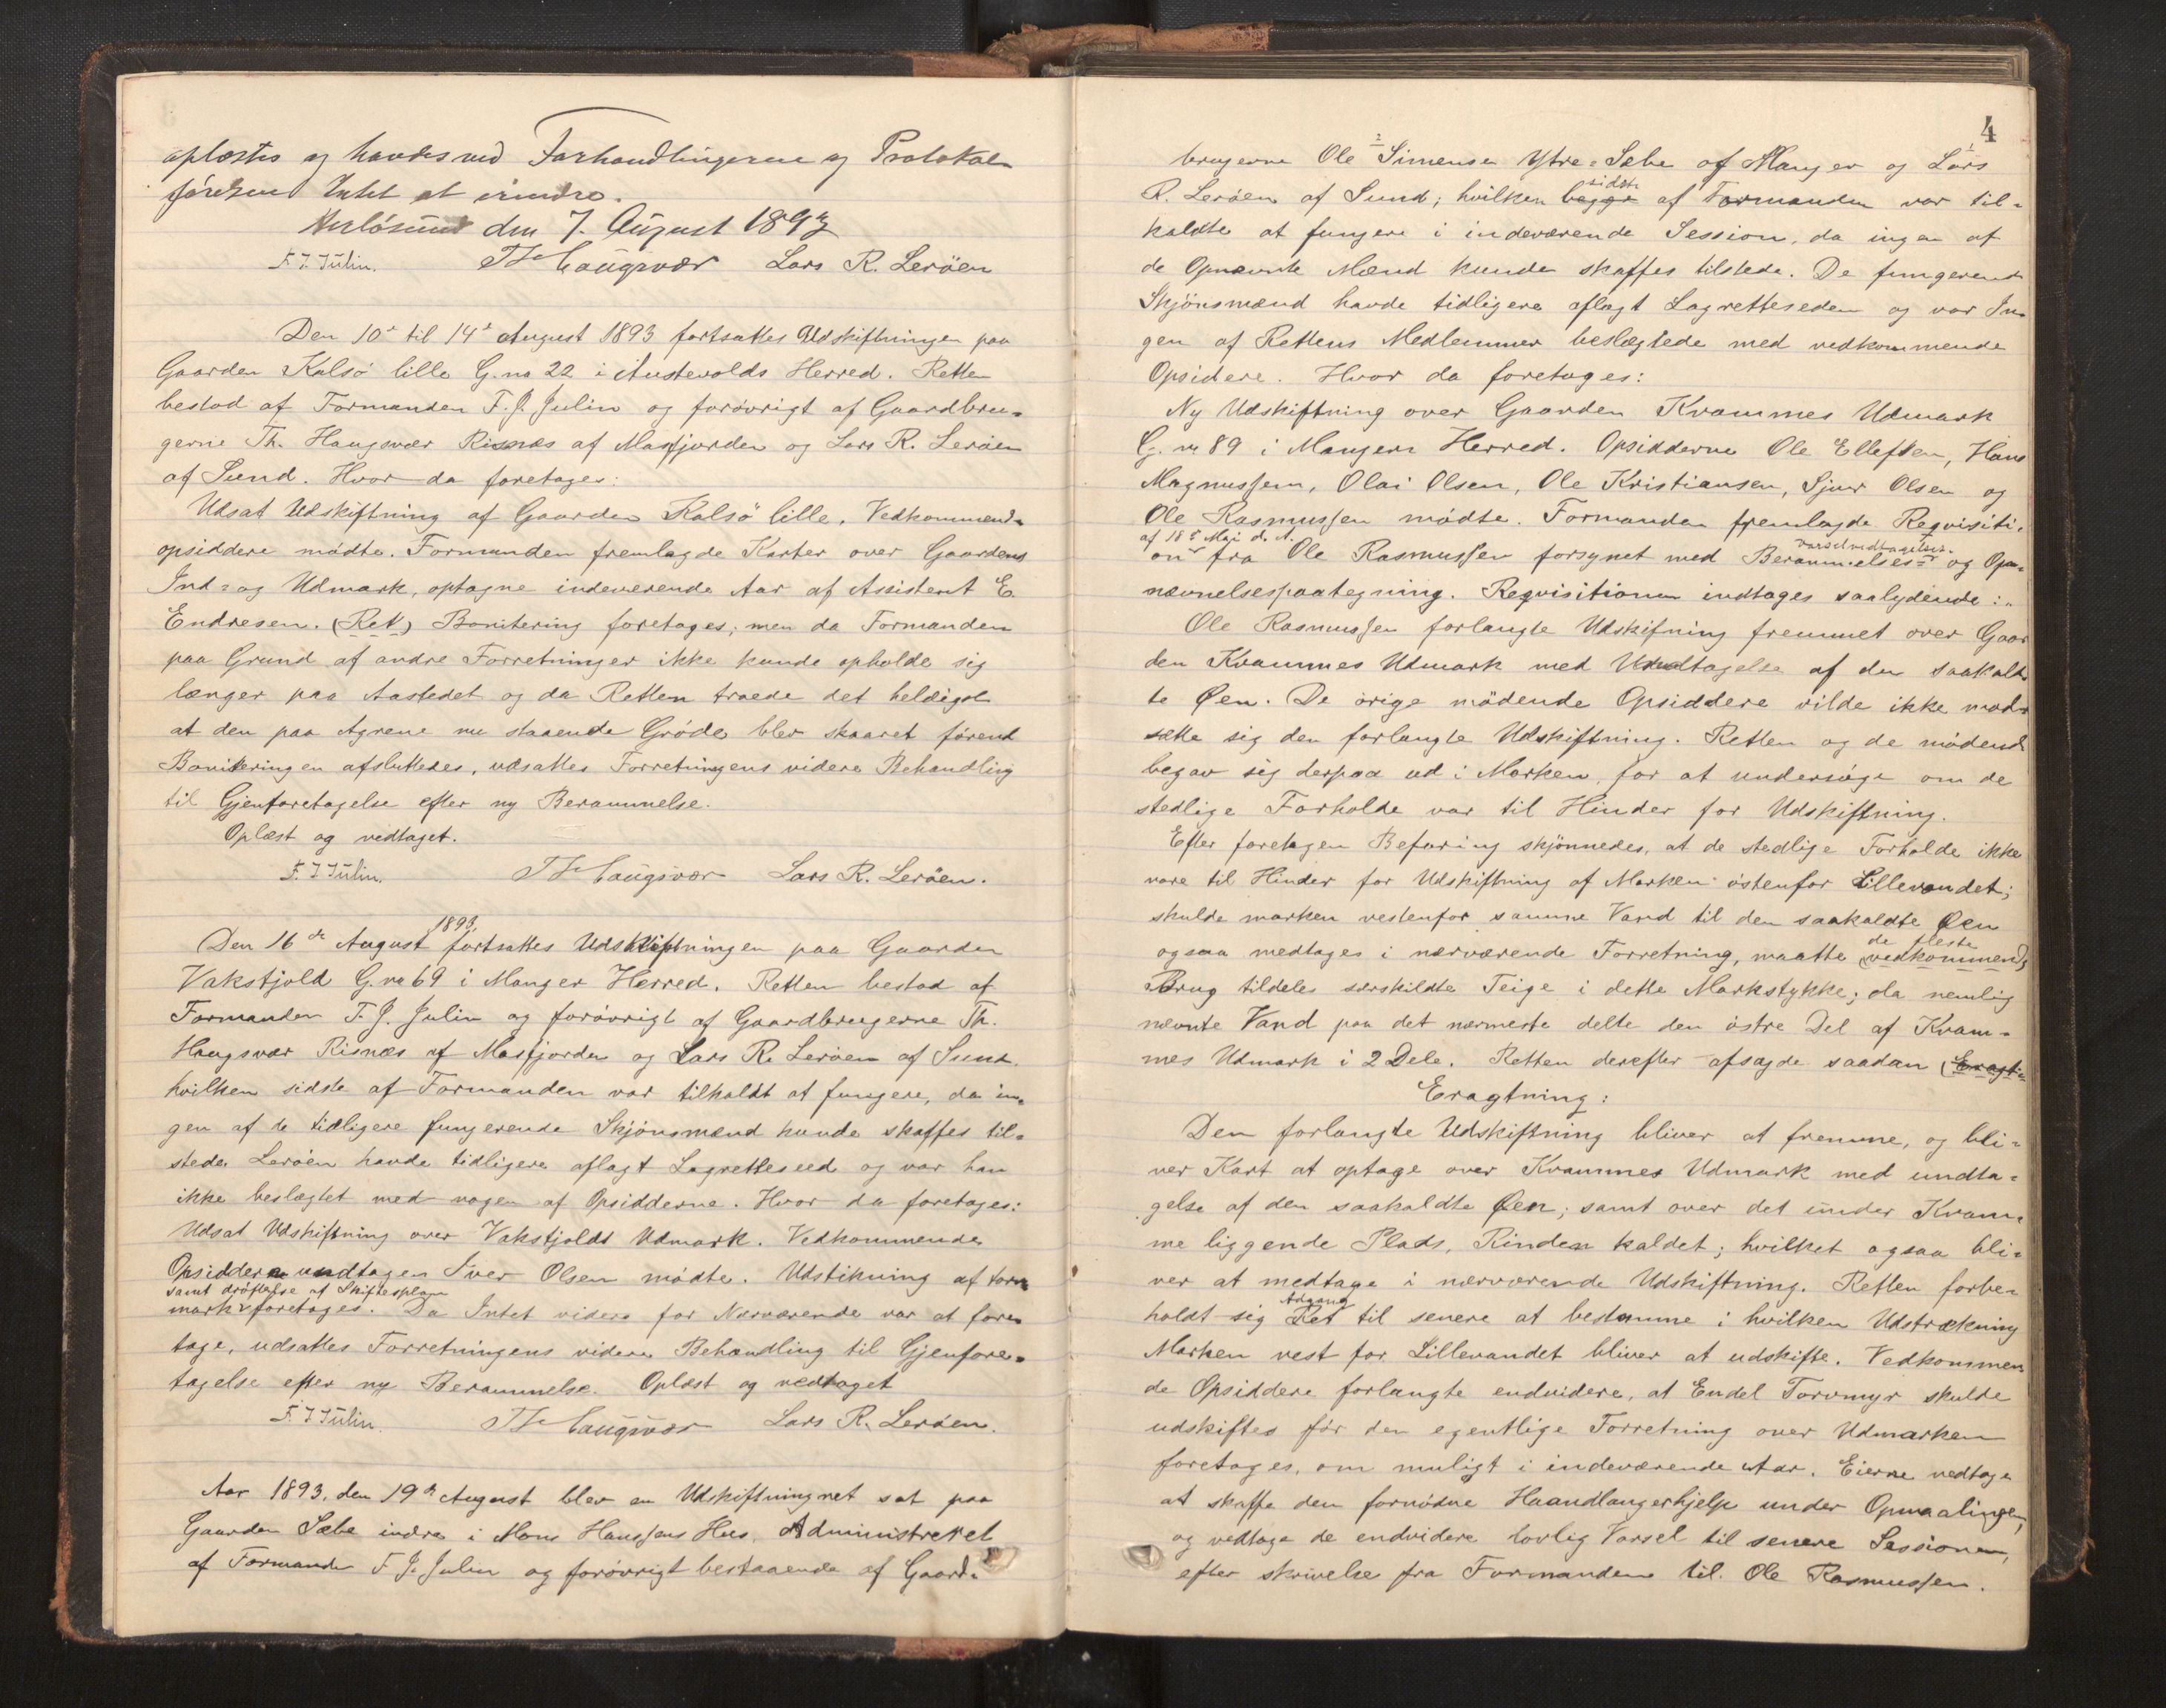 oplæstes og havdes ved Forhandlingerne og Protokol-
førelsen Intet at erindre.
den 7. August 1893
F. J. Julin. Th Haugsvær Lars R. Lerøen
Den 10de til 14de August 1893 fortsattes Udskiftningen paa
Gaarden Kalsø lille G.no 22 i Austevolds Herred. Retten
bestod af Formanden F. J. Julin og forøvrigt af Gaardbru-
gerne Th. Haugsvær Risnæs af Masfjorden og Lars R. Lerøen
af Sund. Hvor da foretages:
Udsat Udskiftning af Gaarden Kalsø lille. Vedkommende
opsiddere mødte. Formanden fremlagde Karter over Gaardens
Ind- og Udmark, optagne indeværende Aar af Assistent E
Endresen. (Ret) Bonitering foretages; men da Formanden
paa Grund af andre Forretninger ikke kunde opholde sig
længer paa Aastedet og da Retten troede det heldigst
at den paa Agrene nu staaende Grøde blev skaaret førend
Boniteringen afsluttedes, udsattes Forretningens videre Behandling
til Gjenforetagelse efter ny Berammelse.
Oplæst og vedtaget.
F. J. Julin. Th Haugsvær Lars R. Lerøen.
Den 16de August 1893, fortsattes Udskiftningen paa Gaarden
Vakstjold G.no 69 i Manger Herred. Retten bestod af
Formanden F. J. Julin og forøvrigt af Gaardbrugerne Th.
Haugsvær Risnæs af Masfjorden og Lars R. Lerøen af Sund.
hvilken sidste af Formanden var tilkaldt at fungere, da in-
gen af de tidligere fungerende Skjønsmænd kunde skaffes til-
stede. Lerøen havde tidligere aflagt Lagretteseed og var han
ikke beslægtet med nogen af Opsidderne. Hvor da foretages:
Udsat Udskiftning over Vakstjolds Udmark. Vedkommende
Opsiddere undtagen Iver Olsen mødte. Udstikning af torv
samt drøftelse af Skiftesplan
mark foretages. Da Intet videre for Nærværende var at fore-
tage, udsattes Forretningens videre Behandling til Gjenfore-
tagelse efter ny Berammelse. Oplæst og vedtaget
F. J. Julin. Th Haugsvær Lars R. Lerøen.
Aar 1893, den 19de August blev en Udskiftningsret sat paa
Gaarden Sæbe indre i Mons Hanssens Hus. Administreret
af Formanden F. J. Julin og forøvrigt bestaaende af Gaard-
4
brugerne Ole Simensen Ytre-Sæbe af Manger og Lars
R. Lerøen af Sund; hvilken begge sidste af Formanden var til-
kaldte at fungere i indeværende Session, da ingen af
de Opnævnte Mænd kunde skaffes tilstede. De fungerende
Skjønsmænd havde tidligere aflagt Lagretteseden og var In-
gen af Rettens Medlemmer beslægtede med vedkommende
Opsidere. Hvor da foretages:
Ny Udskiftning over Gaarden Krammes Udmark
G.no 89 i Mangers Herred. Opsidderne Ole Ellefsen, Hans
Magnussen, Olai Olsen, Ole Kristiansen, Sjur Olsen og
Ole Rasmussen mødte. Formanden fremlagde Reqvisiti-
af 18de Maj d. A. varselvedtagelses-
on fra Ole Rasmussen forsynet med Berammelses- og Op-
nævnelsespaategning. Reqvisitionen indtages saalydende:
Ole Rasmussen forlangte Udskifning fremmet over Gaar
den Krammes Udmark med Undtagelse af den saakald
te Øen. De örige mødende Opsiddere vilde ikke mod-
sætte sig den forlangte Udskiftning. Retten og de mødende
begav sig derpaa ud i Marken for at undersøge om de
stedlige Forholde var til Hinder for Udskiftning.
Efter foretagen Befaring skjønnedes, at de stedlige Forholde ikke
vare til Hinder for Udskiftning af Marken østenfor Lillevandet;
skulde marken vestenfor samme Vand til den saakaldte Øen
ogsaa medtages i nærværende Forretning, maatte de fleste (vedkommende)
Brug tildeles særskildte Teige i dette Markstykke; da nemlig
nævnte Vand paa det nærmeste delte den østre Del af Kram-
mes Udmark i 2 Dele. Retten derefter afsagde saadan (Eragt-
Eragtning:
Den forlangte Udskiftning bliver at fremme, og bli-
ver Kart at optage over Krammes Udmark med undta-
gelse af den saakaldte Øen; samt over det under Kram-
me liggende Plads, Rinden kaldet; hvilket ogsaa bli-
ver at medtage i nærværende Udskiftning. Retten forbe-
holdt sig Adgang Ret til senere at bestemme i hvilken Udstrækning
Marken vest for Lillevandet bliver at udskifte. Vedkommen
de Opsiddere forlangte endvidere, at Endel Torvmyr skulde
udskiftes før den egentlige Forretning over Udmarken
foretages, om muligt i indeværende Aar. Eierne vedtoge
at skaffe den fornødne Haandlangerhjelp under Opmaalingen,
og vedtoge de endvidere lovlig Varsel til senere Sessioner,
efter skrivelse fra Formanden til Ole Rasmussen.